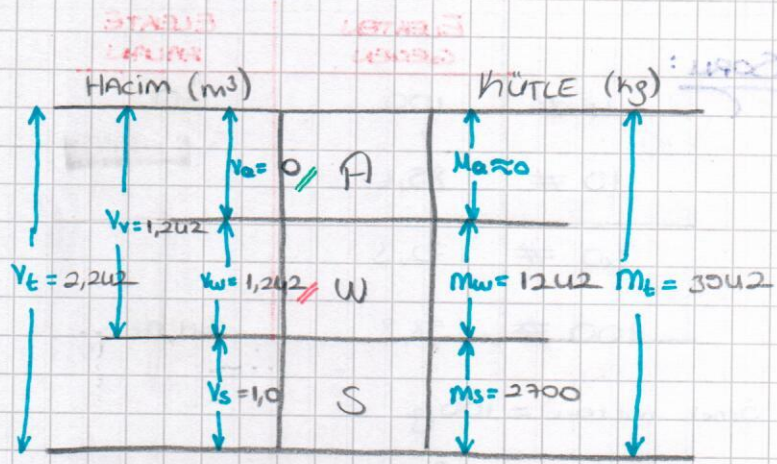 Soru:
HACİM (m³) KÜTLE (kg)
Va = 0 A Ma ≈ 0
Vv = 1,242
Vt = 2,242 Vw = 1,242 W Mw = 1242 Mt = 3942
Vs = 1,0 S Ms = 2700